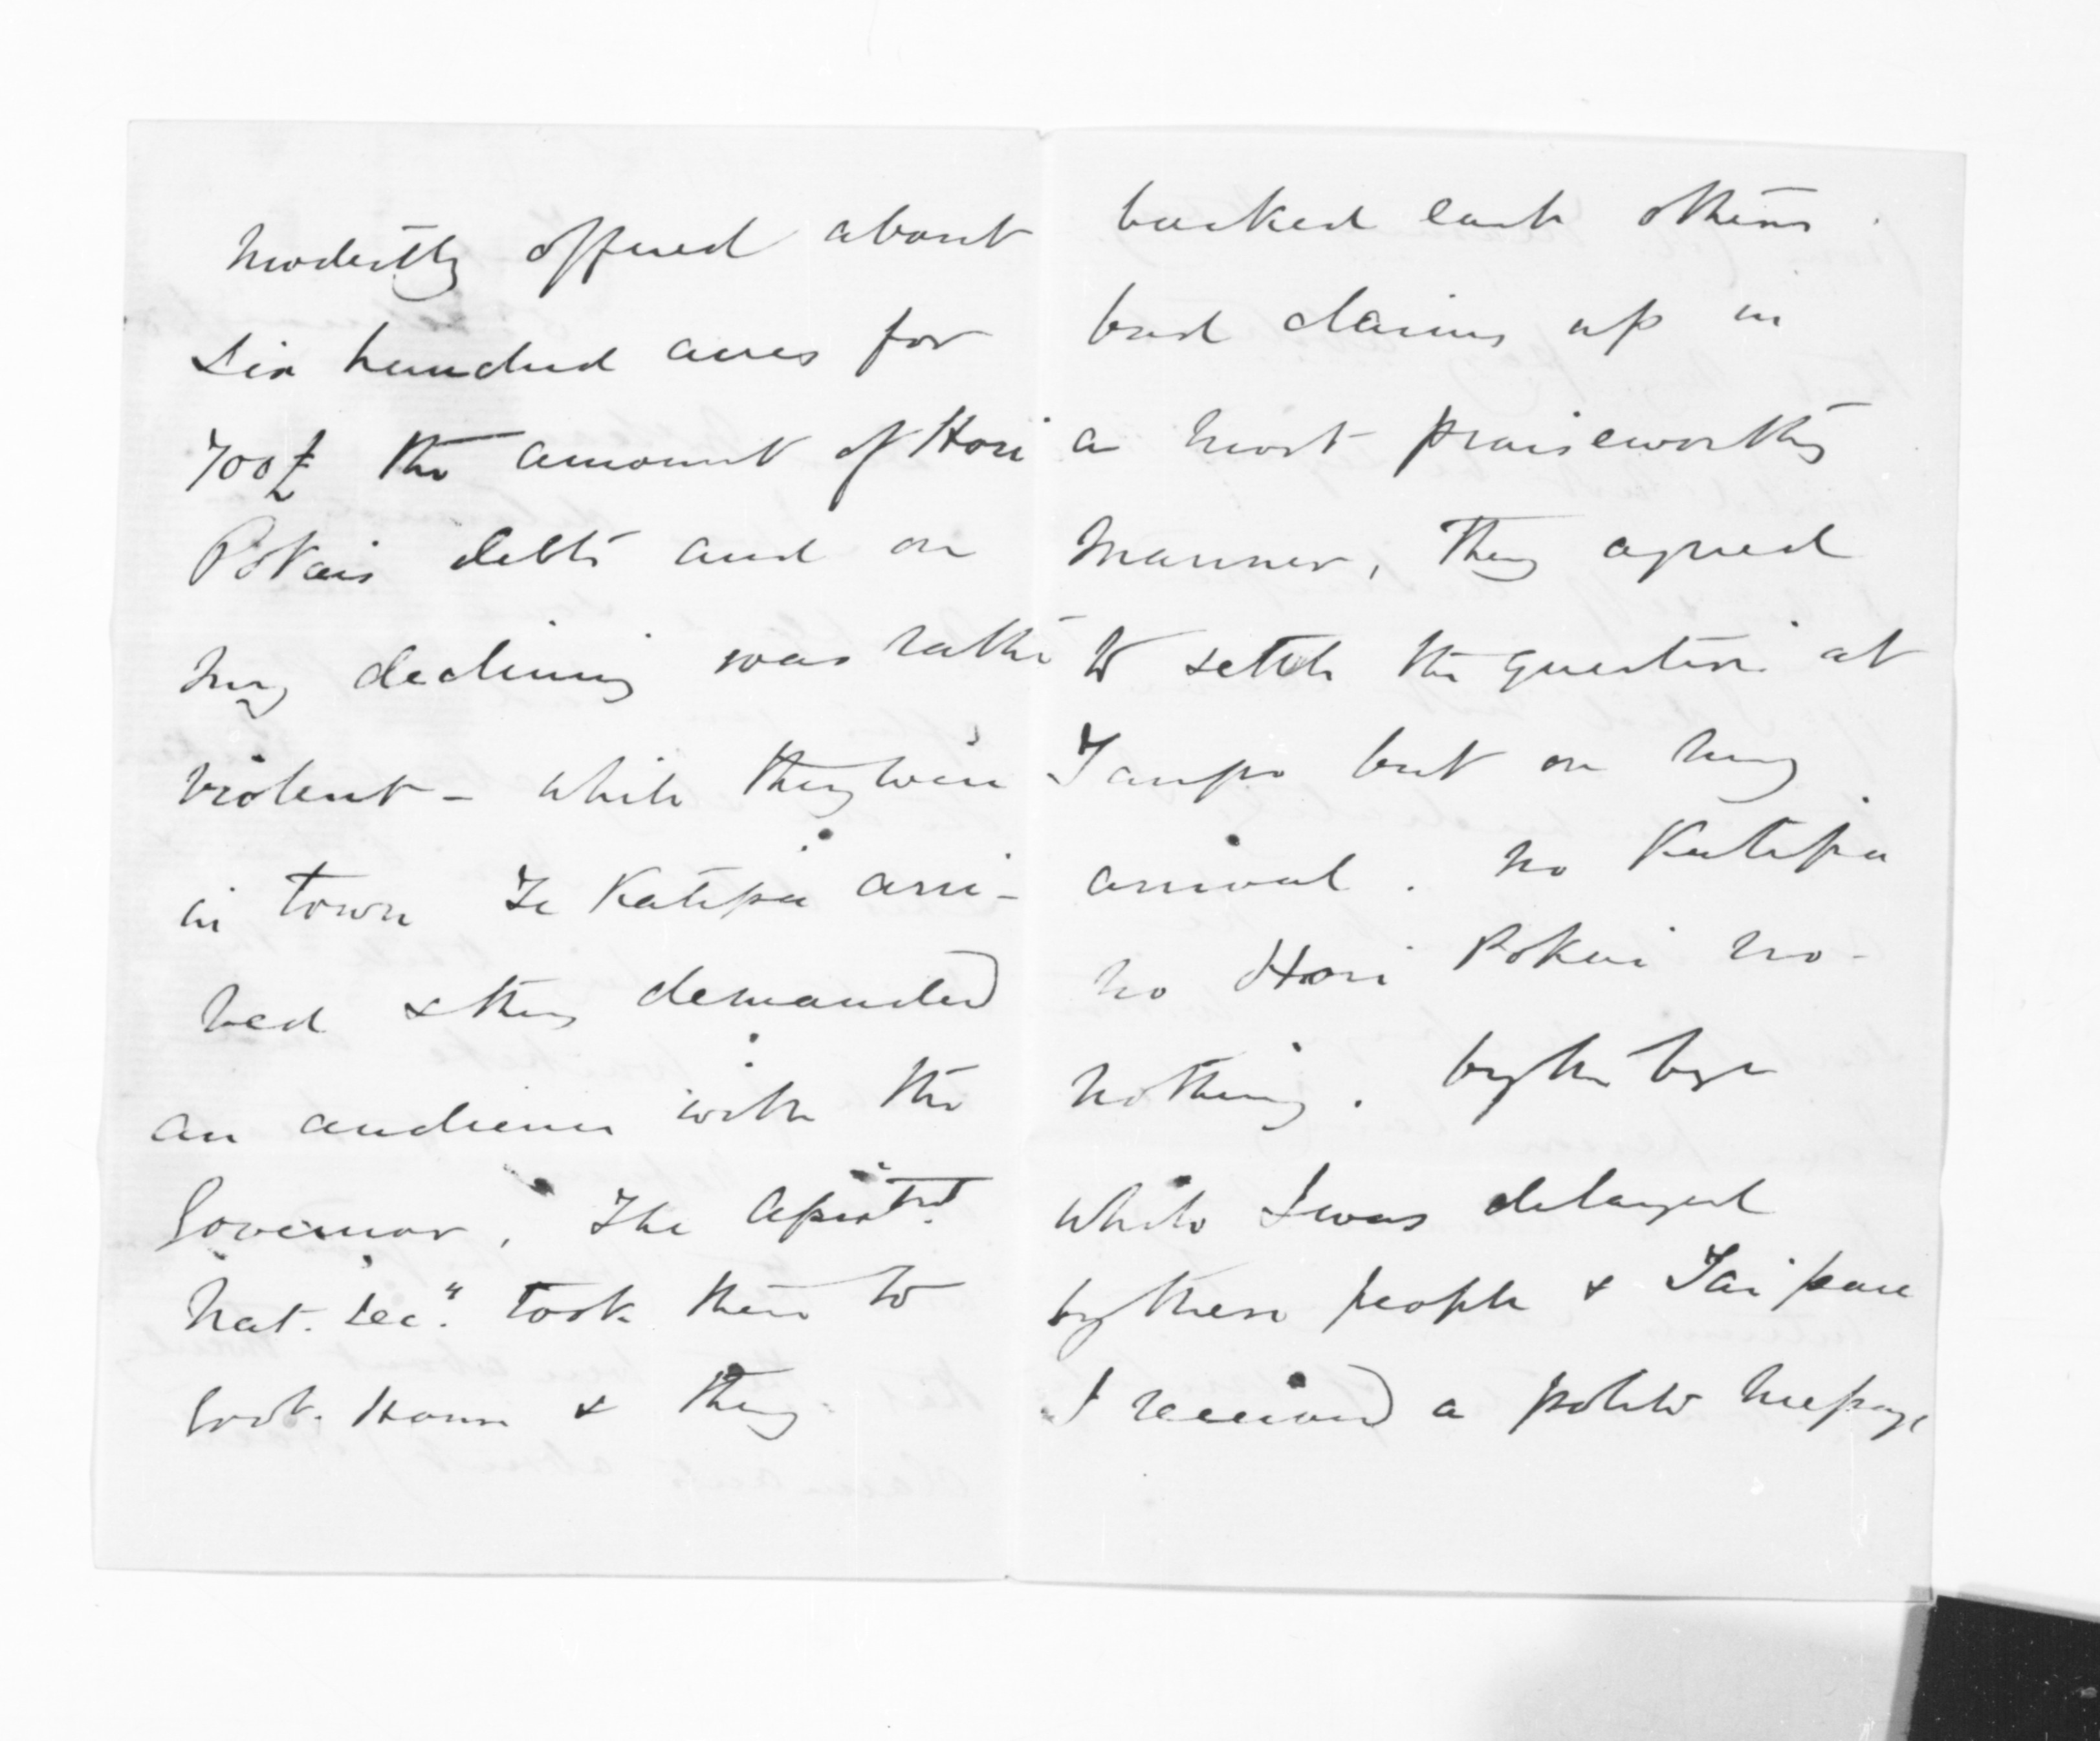 modestly offered about
six hundred acres for
700£ the amount of Hori
Pokais debts and on
my declining was rather
violent - while they were
in town Te Katipa arri-
ved & they demanded
an audience with the
Governor, The Assistnt.
Nat. Sec. took them to
Govt. House & they
backed each others
bad claims up in
a most praiseworthy
manner, They agreed
to settle the question at
Taupo but on my
arrival. no Katipa
no Hori Pokai no-
nothing. by the bye
while I was delayed
by these people & Taipari
I received a polite message